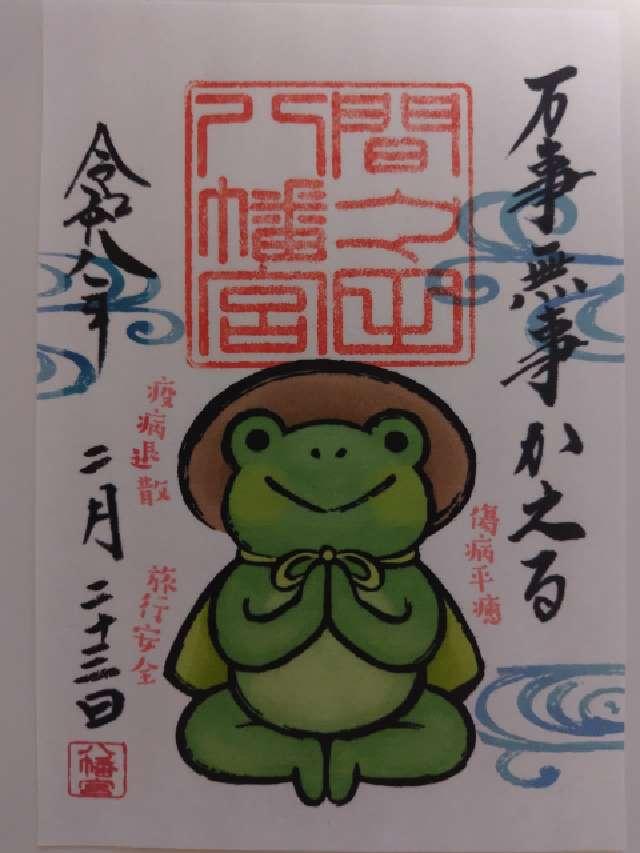 万事無事かえる
間之山
八幡宮
傷病平癒
疫病退散
旅行安全
令和八年
二月二十三日
八幡宮